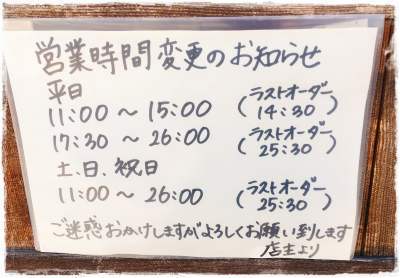 営業時間変更のお知らせ
平日
11:00 ～ 15:00 (ラストオーダー 14:30)
17:30 ～ 26:00 (ラストオーダー 25:30)
土、日、祝日
11:00 ～ 26:00 (ラストオーダー 25:30)
ご迷惑おかけしますがよろしくお願い到します
店主より